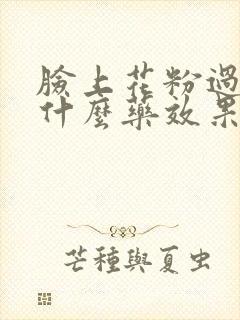 臉上花粉過
什麼藥效果
芒種與夏虫